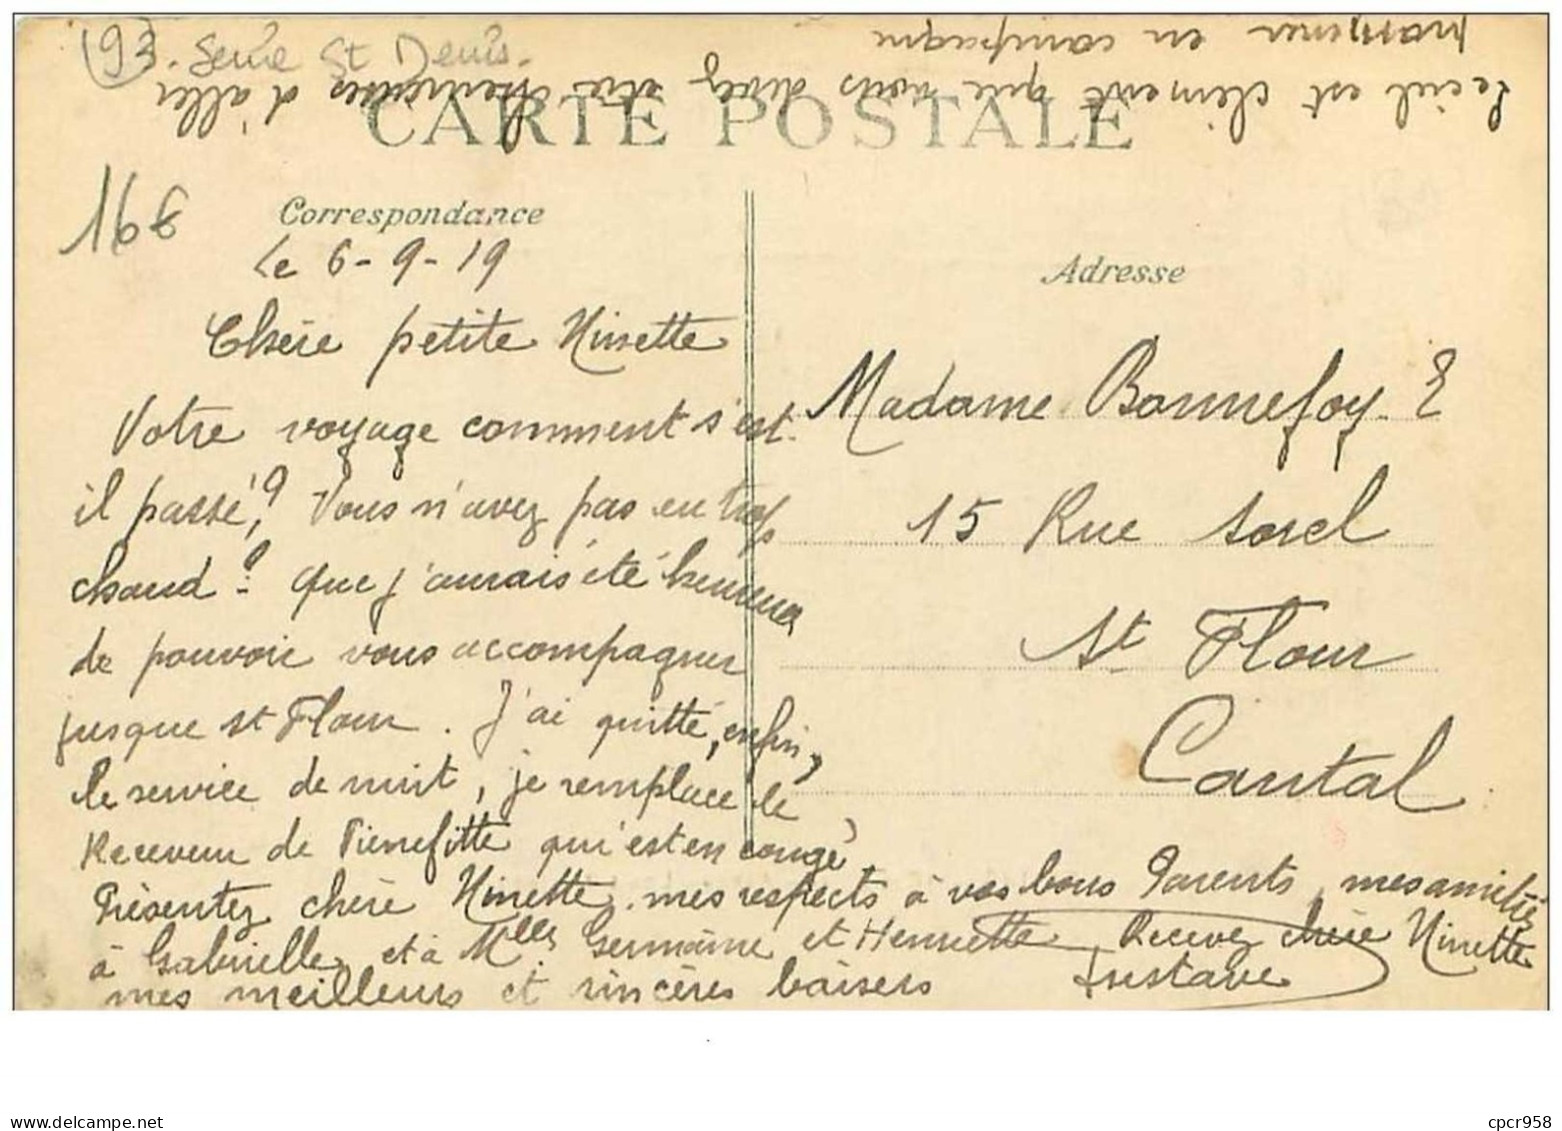 93. Seine St Denis.
CARTE POSTALE
168
Correspondance
Le 6-9-19
Chère petite Ninette
Votre voyage comment s'est-
il passé? Vous n'avez pas eu trop
chaud? Que j'aurais été heureux
de pouvoir vous accompagner
jusque St Flour. J'ai quitté, enfin,
le service de nuit, je remplace le
Receveur de Pierrefitte qui est en congé.
Présentez chère Ninette mes respects à vos bons Parents, mes amitiés
à Gabrielle, et à Mlles Germaine et Henriette Recevez chère Ninette
mes meilleurs et sincères baisers Gustave
Le ciel est clément que vous devez être heureuses d'aller
promener en campagne
Adresse
Madame Bonnefoy. E
15 Rue Sorel
St Flour
Cantal
cpcr958